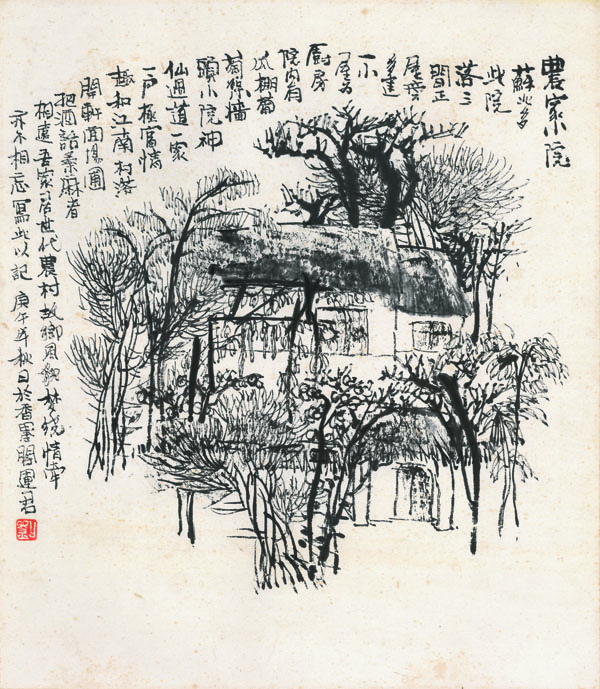 農家小院
蘇北多
此院
落三
間正
屋旁
建
一小
屋為
厨房
院内有
瓜棚葡
萄繞墻
頭小院神
仙過道一家
一户極富情
趣和江南村落
開軒面場圃
把酒話桑麻者
相遠吾家居世代農村故鄉風貌夢繞情牽
亦不相忘寫此以記 庚午年秋日於香墨閣運君